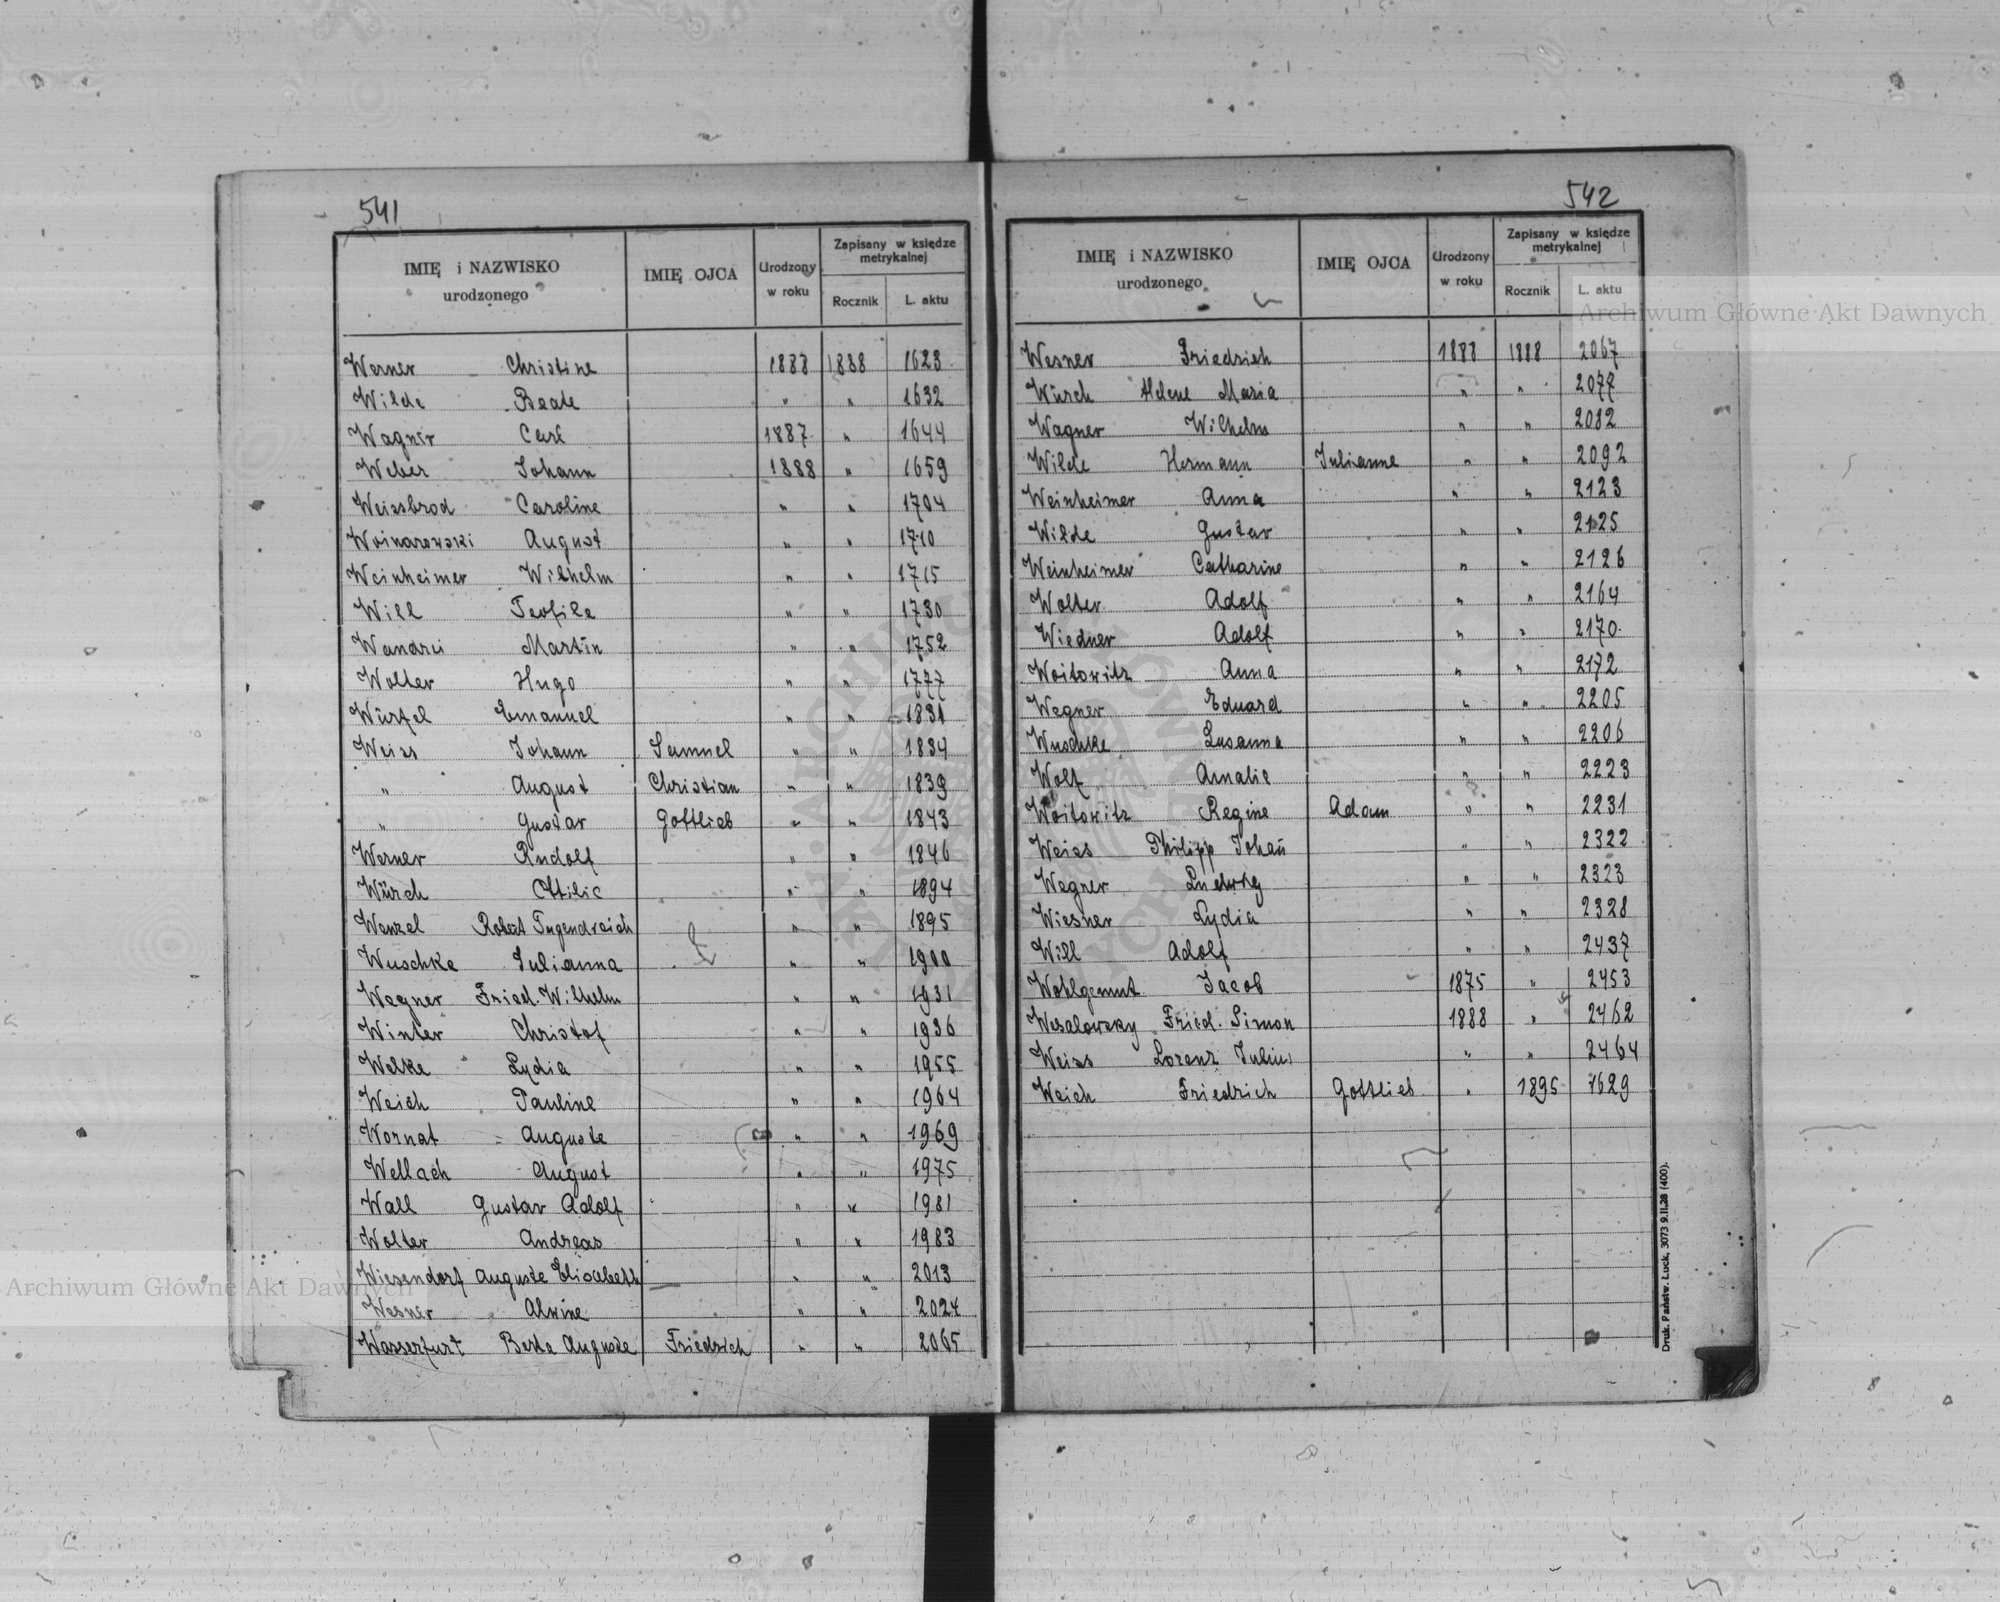 541
IMIĘ i NAZWISKO urodzonego IMIĘ OJCA Urodzony w roku Zapisany w księdze metrykalnej Rocznik L. aktu
Werner Christine 1888 1888 1623
Wilde Beate " " 1632
Wagner Carl 1887 " 1644
Weber Johann 1888 " 1659
Weissbrod Caroline " " 1704
Woinarowski August " " 1710
Weinheimer Wilhelm " " 1715
Will Teofile " " 1730
Wandrei Martin " " 1752
Wolter Hugo " " 1777
Würfel Emanuel " " 1831
Weiss Johann Samuel " " 1834
" August Christian " " 1839
" Gustav Gottlieb " " 1843
Werner Rudolf " " 1846
Würch Ottilie " " 1894
Wenzel Robert Tugendreich " " 1895
Wuschke Julianna " " 1900
Wagner Fried. Wilhelm " " 1931
Winter Christof " " 1936
Welke Lydia " " 1955
Weich Pauline " " 1964
Wornat Auguste " " 1969
Wellach August " " 1975
Wall Gustav Adolf " " 1981
Wolter Andreas " " 1983
Wiesendorf Auguste Elisabeth " " 2013
Wesner Alwine " " 2024
Wasserfurt Berta Auguste Friedrich " " 2065
542
IMIĘ i NAZWISKO urodzonego IMIĘ OJCA Urodzony w roku Zapisany w księdze metrykalnej Rocznik L. aktu
Wesner Friedrich 1888 1888 2067
Würch Helene Maria " " 2077
Wagner Wilhelm " " 2082
Wilde Hermann Julianne " " 2092
Weinheimer Anna " " 2123
Wilde Gustav " " 2125
Weinheimer Catharine " " 2126
Wolter Adolf " " 2164
Wiedner Adolf " " 2170
Woitowitz Anna " " 2172
Wegner Eduard " " 2205
Wuschke Susanna " " 2206
Wolf Amalie " " 2223
Woitowitz Regine Adam " " 2231
Weiss Philipp Johañ " " 2322
Wegner Ludwig " " 2323
Wiesner Lydia " " 2328
Will Adolf " " 2437
Wohlgemut Jacob 1875 " 2453
Wesalowsky Fried. Simon 1888 " 2462
Weiss Lorenz Julius " " 2464
Weich Friedrich Gottlieb " 1895 1629
Druk. Państw. Łuck, 3073 9.II.28 (400).
Archiwum Główne Akt Dawnych
Archiwum Główne Akt Dawnych